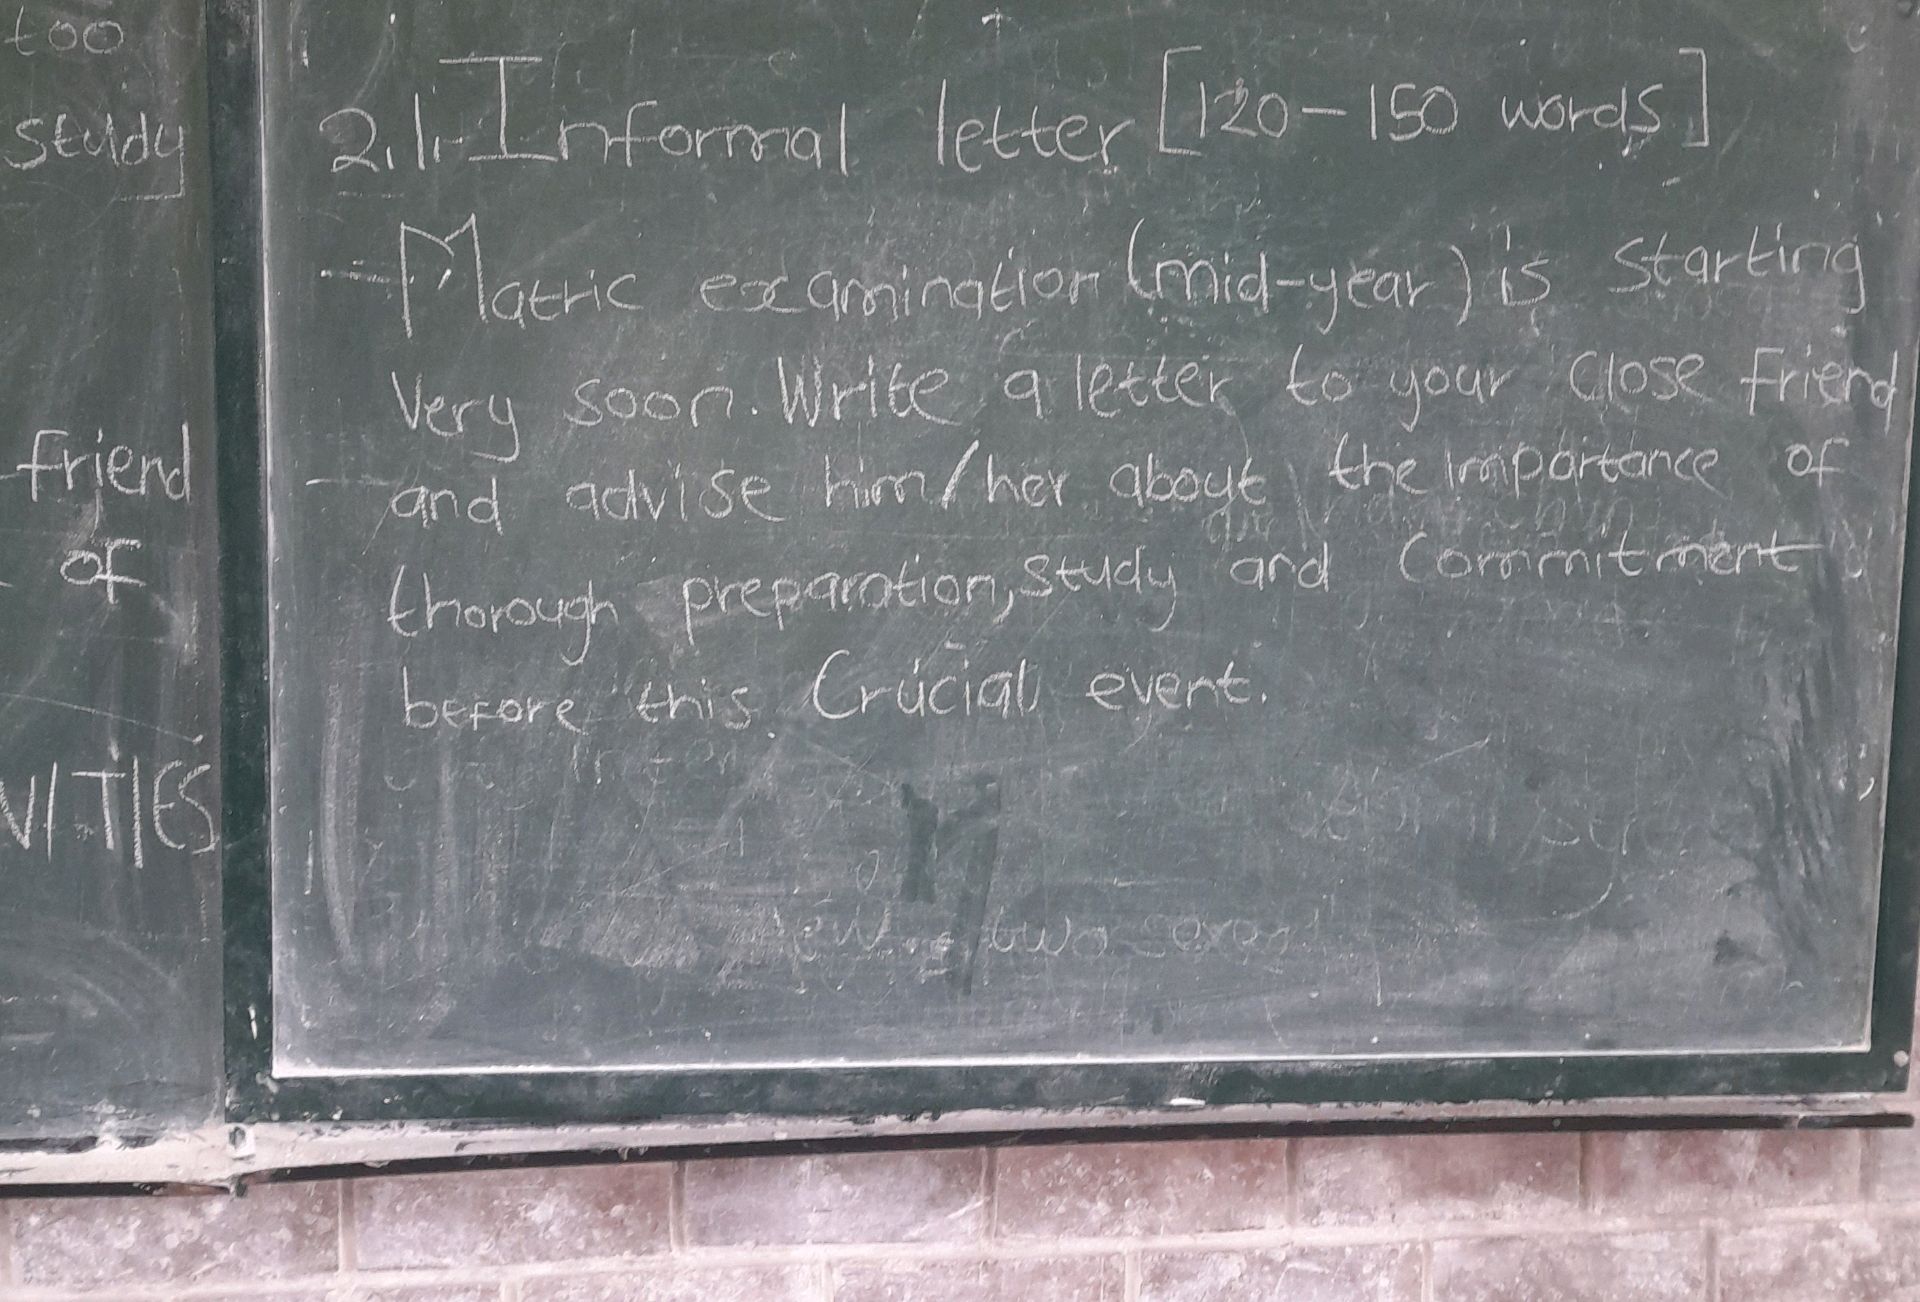 too
study
friend
of
VITIES
2.1. Informal letter [120-150 words]
- Matric examination (mid-year) is starting
very soon. Write a letter to your close friend
and advise him/her about the importance of
thorough preparation, study and commitment
before this crucial event.